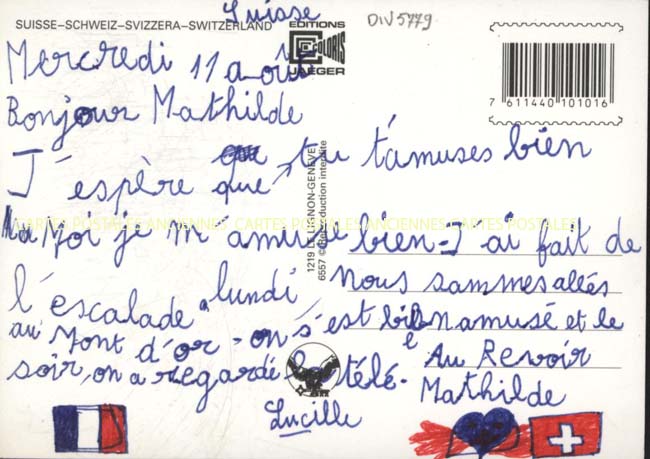 Suisse
DIV 5779
SUISSE–SCHWEIZ–SVIZZERA–SWITZERLAND
EDITIONS
COLORIS
JAEGER
7 611440 101016
Mercredi 11 août
Bonjour Mathilde
J'espère que tu t'amuses bien
Moi je m'amuse bien. J'ai fait de
l'escalade lundi, Nous sommes allés
au Mont d'or. on s'est bien amusé et le
soir, on a regardé la télé.
Au Revoir
Mathilde
Lucille
1219 LE LIGNON-GENEVE
6557 © Reproduction interdite
CARTES POSTALES ANCIENNES CARTES POSTALES ANCIENNES CARTES POSTALES